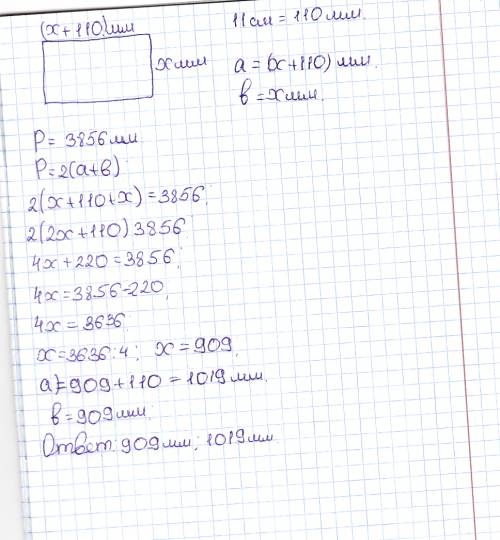 (x+110)мм
11см = 110мм.
x мм
a = (x+110) мм.
в = x мм.
P = 3856 мм
P = 2(a+в)
2(x+110+x) = 3856;
2(2x+110) 3856
4x + 220 = 3856;
4x = 3856-220,
4x = 3636.
x = 3636:4; x = 909,
a) = 909 + 110 = 1019 мм.
в = 909 мм;
Ответ: 909 мм; 1019 мм